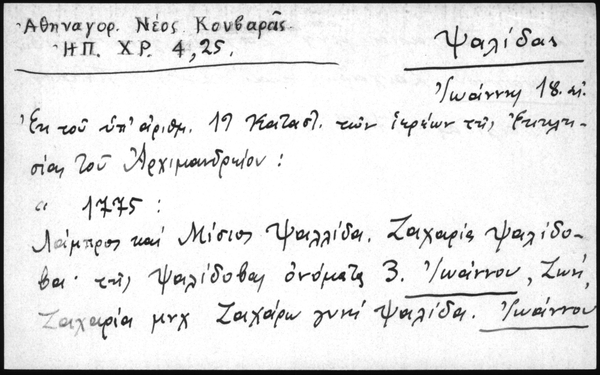 Ἀθηναγορ. Νέος Κουβαρᾶς.
ΗΠ. ΧΡ. 4, 25.
Ψαλίδας
Ἰωάννη 18. αἰ.
Ἐκ τοῦ ὑπ' ἀριθμ. 19 Καταστ. τῶν ἱερέων τῆς Ἐκκλη-
σίας τοῦ Ἀρχιμανδρείου :
" 1775 :
Λάμπρος καὶ Μίσιος Ψαλλίδα. Ζαχαρίας Ψαλίδο-
βα· τῆς Ψαλίδοβας ὀνόματα 3. Ἰωάννου, Ζωή,
Ζαχαρία μνχ Ζαχάρω γυνή Ψαλίδα. Ἰωάννου